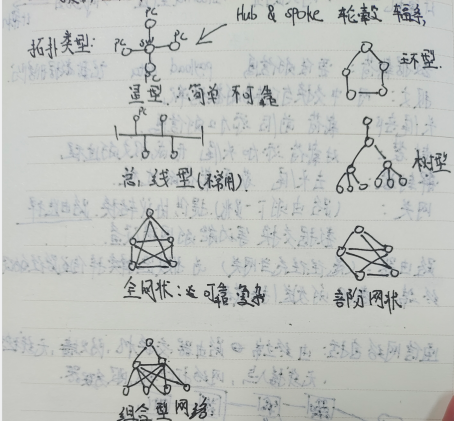 Hub & spoke 轮毂 辐条
PC
拓扑类型:
PC SW PC
PC
环型
星型, 简单 不可靠
PC
树型
总线型(不常用)
全网状: 可靠 复杂
部分网状
组合型网络